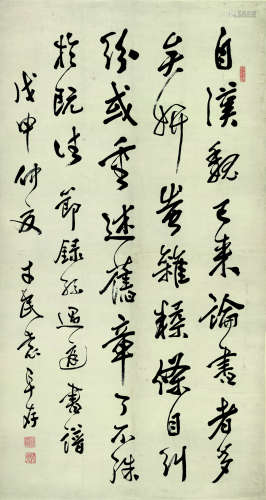 自漢魏已來論書者多
矣妍蚩雜糅條目糾
紛或重述舊章了不殊
於既往節錄孫過庭書譜
戊申仲夏